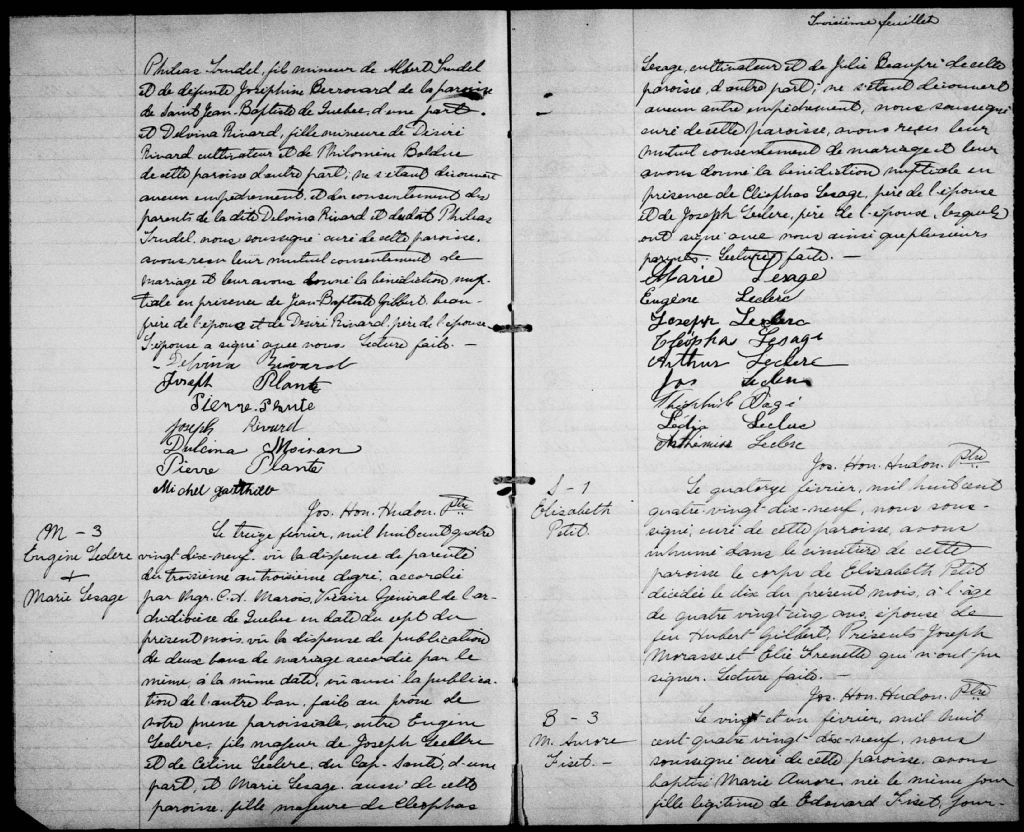 Phileas Trudel, fils mineur de Albert Trudel
et de défunte Joséphine Berrouard de la paroisse
de Saint Jean-Baptiste de Québec, d'une part
et Delvina Rivard, fille mineure de Désiré
Rivard cultivateur et de Philomène Bolduc
de cette paroisse d'autre part; ne s'étant découvert
aucun empêchement, et du consentement des
parents de la dite Delvina Rivard et dudit Phileas
Trudel, nous soussigné curé de cette paroisse,
avons reçu leur mutuel consentement de
mariage et leur avons donné la bénédiction nup-
tiale en présence de Jean-Baptiste Gilbert, beau-
frère de l'époux et de Désiré Rivard, père de l'épouse.
L'épouse a signé avec nous. Lecture faite. —
Delvina Rivard
Joseph Plante
Pierre Plante
Joseph Rivard
Dulcina Moisan
Pierre Plante
Michel
Jos. Hon. Hudon. Ptre
M - 3
Eugène Leclerc
+
Marie Lesage
Le treize février, mil huit cent quatre
vingt dix-neuf, vu la dispense de parenté
du troisième au troisième degré, accordée
par Mgr. C. A. Marois, Vicaire Général de l'ar-
chidiocèse de Québec en date du sept du
présent mois, vu la dispense de publication
de deux bans de mariage accordée par le
même, à la même date, vu aussi la publica-
tion de l'autre ban, faite au prône de
notre messe paroissiale, entre Eugène
Leclerc, fils majeur de Joseph Leclerc
et de Céline Leclerc, du Cap-Santé, d'une
part, et Marie Lesage aussi de cette
paroisse, fille majeure de Cléophas
Troisième feuillet
Lesage, cultivateur et de Julie Beaupré de cette
paroisse, d'autre part; ne s'étant découvert
aucun autre empêchement, nous soussigné
curé de cette paroisse, avons reçu leur
mutuel consentement de mariage et leur
avons donné la bénédiction nuptiale en
présence de Cléophas Lesage, père de l'épouse
et de Joseph Leclerc, père de l'époux, lesquels
ont signé avec nous ainsi que plusieurs
parents. Lecture faite. —
Marie Lesage
Eugène Leclerc
Joseph Leclerc
Cléopha Lesage
Arthur Leclerc
Jos Leclerc
Théophile Pagé
Lédia Leclerc
Arthémise Leclerc
Jos. Hon. Hudon. Ptre
S - 1
Elisabeth
Petit
Le quatorze février, mil huit cent
quatre-vingt-dix-neuf, nous sous-
signé, curé de cette paroisse, avons
inhumé dans le cimetière de cette
paroisse le corps de Elisabeth Petit
décédée le dix du présent mois, à l'âge
de quatre vingt cinq ans, épouse de
feu Hubert Gilbert. Présents Joseph
Morasse et Elie Frenette qui n'ont pu
signer. Lecture faite. —
Jos. Hon. Hudon. Ptre
B - 3
M. Aurore
Fiset. —
Le vingt et un février, mil huit
cent quatre vingt-dix-neuf, nous
soussigné curé de cette paroisse, avons
baptisé Marie Aurore, née le même jour
fille légitime de Edouard Fiset, jour-